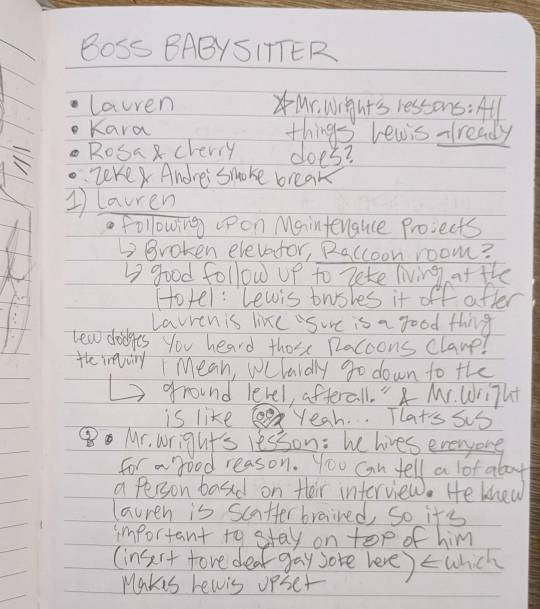 BOSS BABYSITTER
• Lauren
• Kara
• Rosa & Cherry
• Zeke & Andrei Smoke break
☆ Mr. Wright's lessons: All
things Lewis already
does?
1) Lauren
• Following up on Maintenance Projects
↳ Broken elevator, Raccoon room?
↳ good follow up to Zeke living at the
Hotel: Lewis brushes it off after
Lauren is like "Sure is a good thing
You heard those Raccoons Clamp!
I Mean, we hardly go down to the
ground level, afterall." & Mr. Wright
is like Yeah... That's sus
Lew dodges
the inquiry
• Mr. Wright's lesson: he hires everyone
for a good reason. You can tell a lot about
a person based on their interview. He knew
Lauren is scatterbrained, so it's
important to stay on top of him
(insert tone deaf gay joke here) ← which
Makes Lewis upset